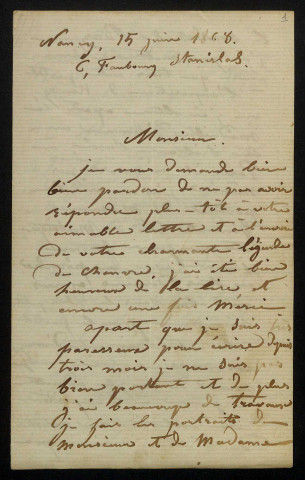 1
Nancy, 15 juin 1868.
6, Faubourg Stanislas.
Monsieur
je vous demande bien
bien pardon de ne pas avoir
répondre plus-tôt à votre
aimable lettre et à l'envoi
de votre charmante légende
de chanvre, j'ai été bien
heureux de la lire et
encore une fois Merci
apart que je suis très
paresseux pour écrire depuis
trois mois je ne suis pas
bien portant et de plus
j'ai beaucoup de travaux
je fais les portraits de
Monsieur et de Madame